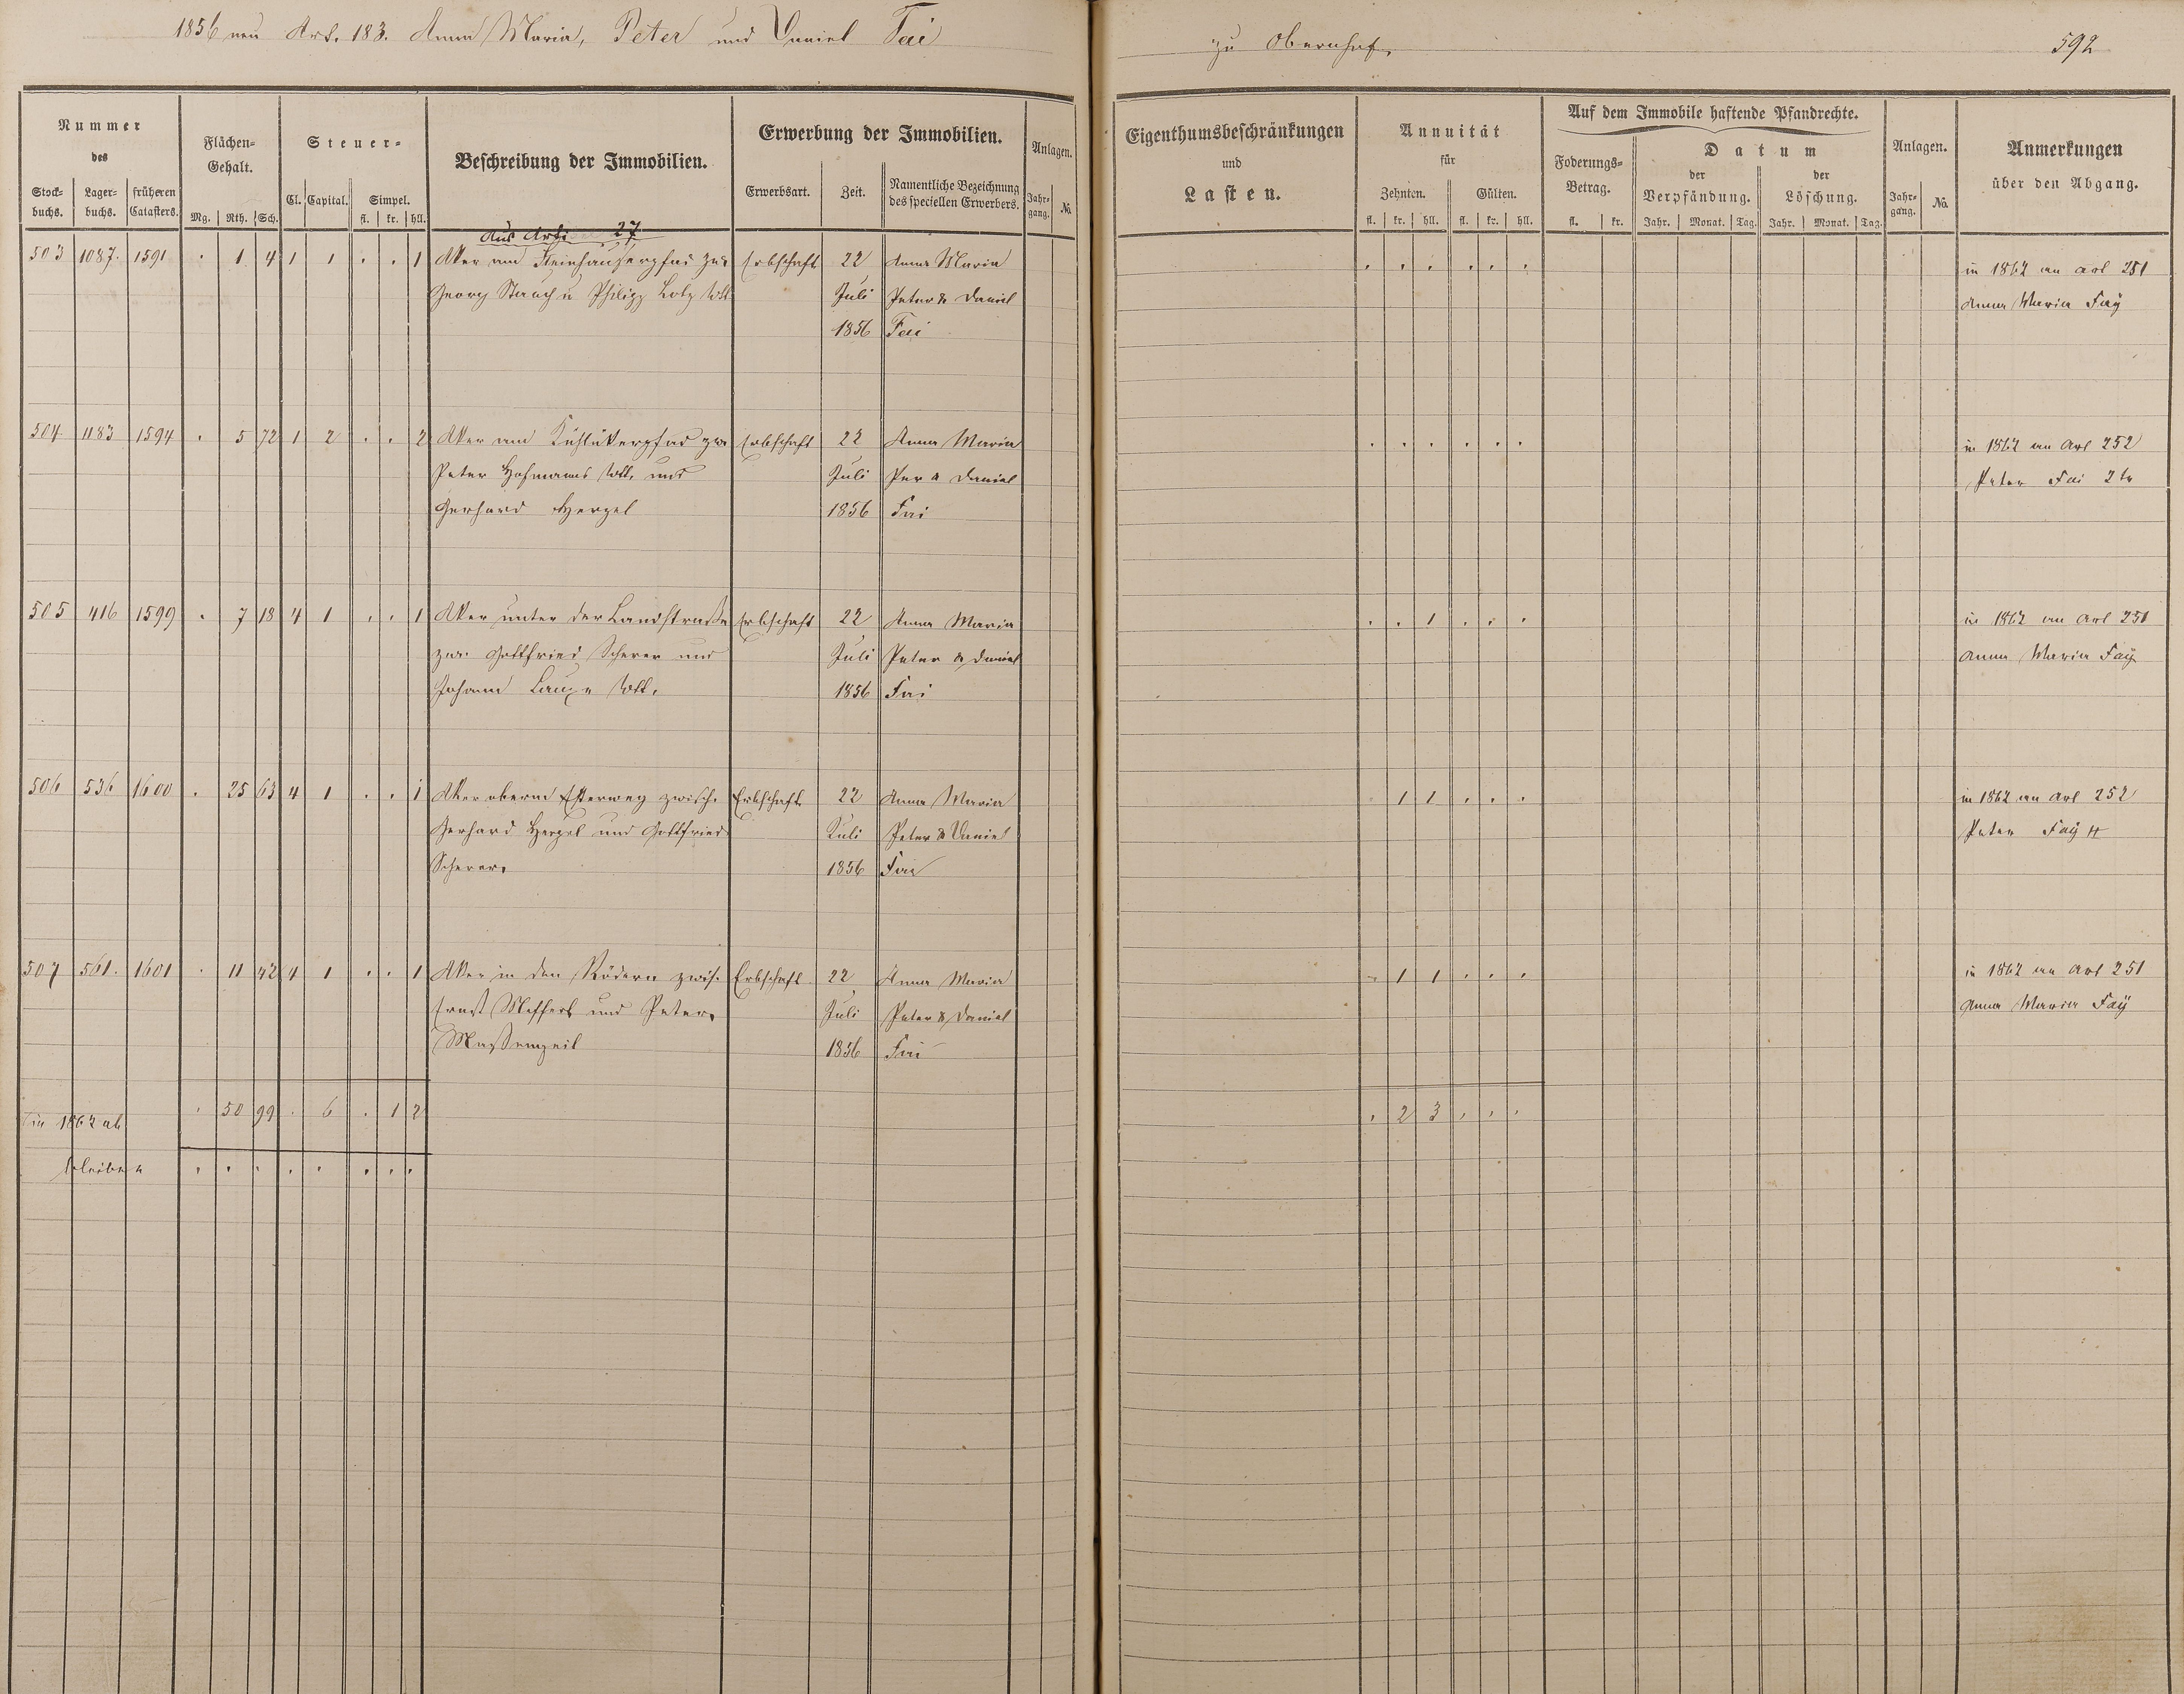 1856 neu Art. 183. Anna Maria, Peter und Daniel Fai
zu Obernhof.
592
Nummer
des
Stock-
buchs.
Lager-
buchs.
früheren
Catasters.
Flächen-
Gehalt.
Mg. Rth. Sch.
Steuer-
Cl. Capital. Simpel.
fl. kr. hll.
Beschreibung der Immobilien.
Erwerbung der Immobilien.
Erwerbsart. Zeit.
Namentliche Bezeichnung
des speciellen Erwerbers.
Anlagen.
Jahr-
gang. No.
Eigenthumsbeschränkungen
und
Lasten.
Annuität
für
Zehnten. Gülten.
fl. kr. hll. fl. kr. hll.
Auf dem Immobile haftende Pfandrechte.
Foderungs-
Betrag.
fl. kr.
Datum
der Verpfändung. der Löschung.
Jahr. Monat. Tag. Jahr. Monat. Tag.
Anlagen.
Jahr-
gang. No.
Anmerkungen
über den Abgang.
Aus Art. 27
503 1087. 1591 . 1 4 1 1 . . 1 Aker am Steinhäuserpfad zw. Erbschaft 22 Anna Maria . . . . . . in 1862 an Art 251
Georg Stauch u Philipp Lotz Wtt Juli Peter & Daniel Anna Maria Faÿ
1856 Fai
504 1183 1594 . 5 72 1 2 . . 2 Aker am zw Erbschaft 22 Anna Maria . . . . . . in 1862 an Art 252
Peter Hofmanns Wtt. und Juli Per & Daniel Peter Fai 2te
Gerhard Hergel 1856 Fai
505 416 1599 . 7 18 4 1 . . 1 Aker unter der Landstraße Erbschaft 22 Anna Maria . . 1 . . . in 1862 an Art 251
zw. Gottfried Scherer und Juli Peter & Daniel Anna Maria Faÿ
Johann Wtt. 1856 Fai
506 536 1600 . 25 63 4 1 . . 1 Aker oberm zwisch. Erbschaft 22 Anna Maria 1 1 . . . in 1862 an Art 252
Gerhard Hergel und Gottfried Juli Peter & Daniel Peter Faÿ
Scherer. 1856 Fai
507 561. 1601 . 11 42 4 1 . . 1 Aker in den Rödern zwisch. Erbschaft 22 Anna Maria 1 1 . . . in 1862 an Art 251
Ernst Meffert und Peter Juli Peter & Daniel Anna Maria Faÿ
Massengeil 1856 Fai
in 1862 ab . 50 99 . 6 . 1 2 . 2 3 . . .
bleiben . . . . . . . .